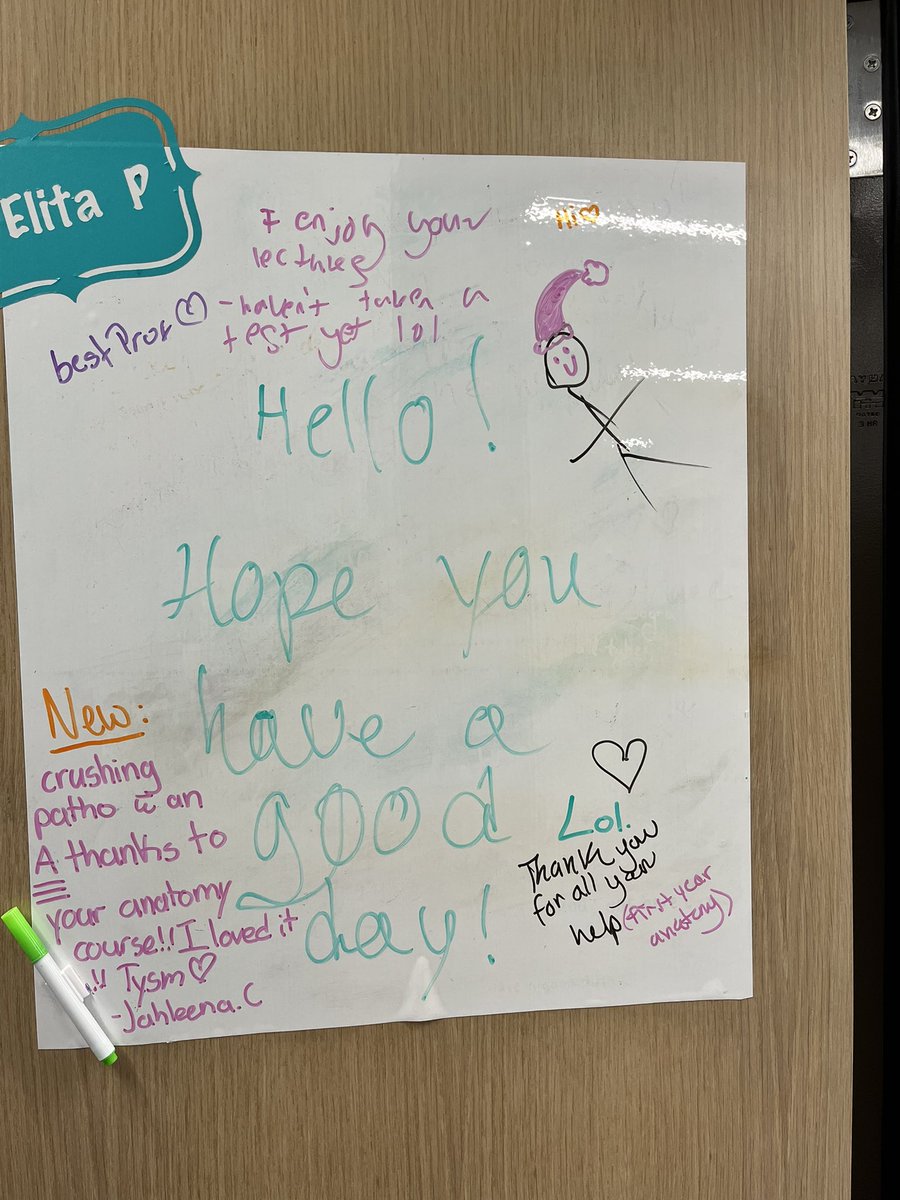 Elita P
I enjoy your
lectures
-haven't taken a
test yet lol
Hi♡
best Prof
Hello!
Hope you
have a
good
day!
New:
crushing
patho c̄ an
A thanks to
your anatomy
course!! I loved it
!! Tysm♡
-Jahleena.C
Lol.
Thank you
for all your
help (first year
anatomy)
3 HR